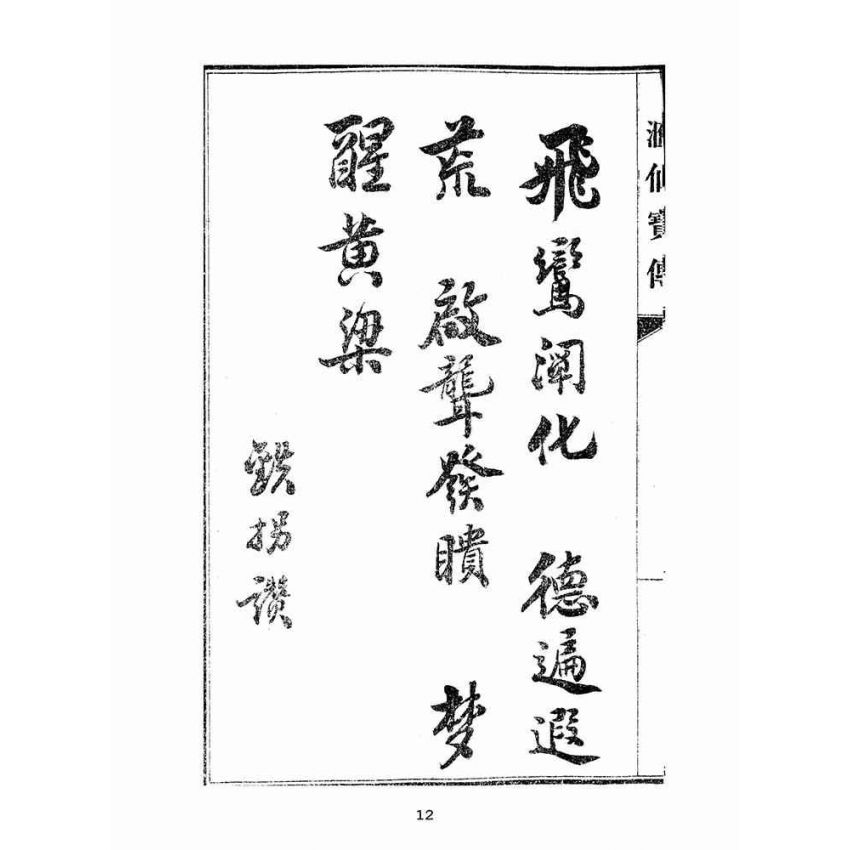 仙寶傳
飛鸞闡化 德遍遐
荒 啟聾發瞶 梦
醒黄粱
鉄拐讚
12